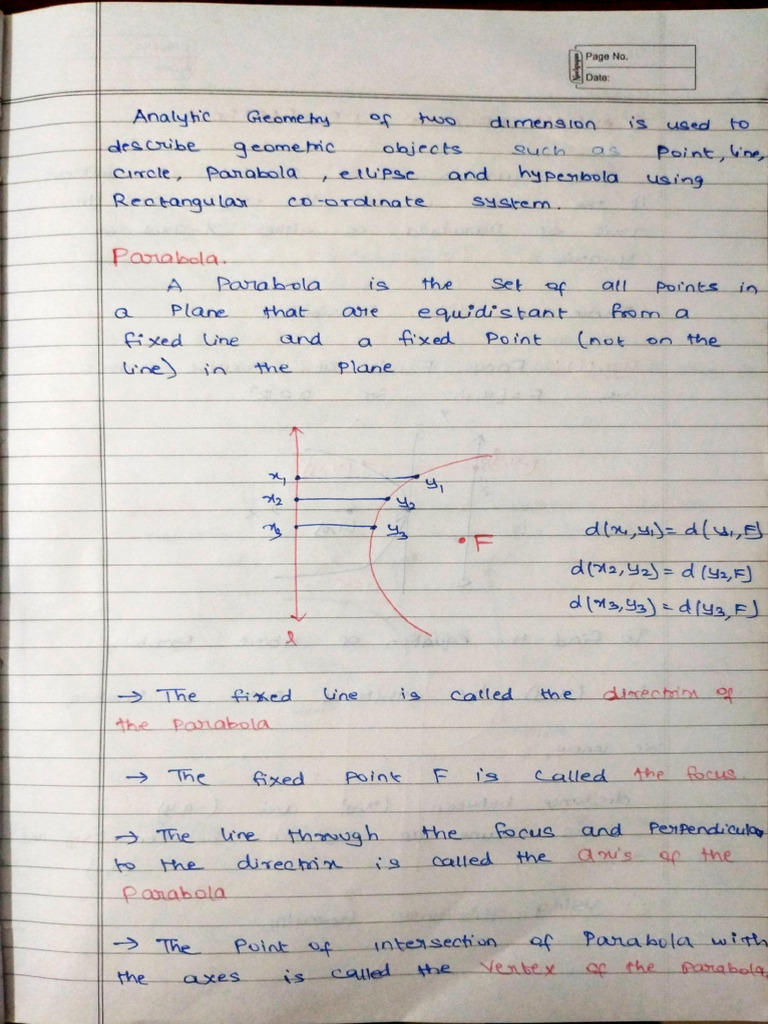 Page No.
Date:
Analytic Geometry of two dimension is used to
describe geometric objects such as point, line,
circle, parabola, ellipse and hyperbola using
Rectangular co-ordinate system.
Parabola.
A Parabola is the set of all points in
a plane that are equidistant from a
fixed line and a fixed point (not on the
line) in the plane
x1 y1
x2 y2
x3 y3
F
d(x1,y1) = d(y1,F)
d(x2,y2) = d(y2,F)
d(x3,y3) = d(y3,F)
l
→ The fixed line is called the directrix of
the parabola
→ The fixed point F is called the focus.
→ The line through the focus and perpendicular
to the directrix is called the axis of the
parabola
→ The point of intersection of parabola with
the axes is called the vertex of the parabola.